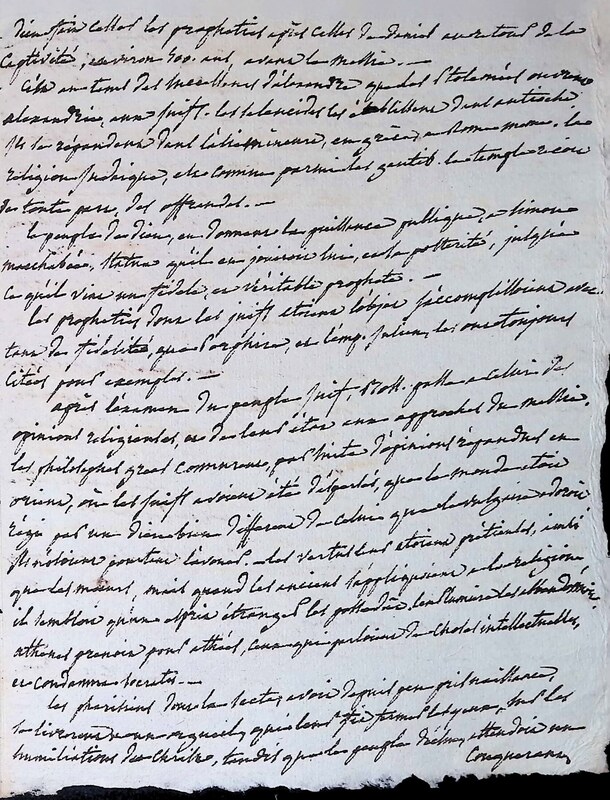 Dieu fair cesser les propheties après celles de daniel au retour de la
Captivité, environ 500. ans, avant le messie. —
C'est au tems des successeurs d'alexandre que les Ptolemées ouvrent
alexandrie, aux juifs. les seleucides les établissent dans antioche,
ils se répandent dans l'asie mineure, en grèce, a Rome meme. la
religion judaique, est connue parmi les gentils. le temple reçoit
de toute part, des offrandes. —
le peuple de dieu, en donnant la puissance publique, a simon
macchabée, statua qu'il en jouiroit lui, et sa posterité, jusqu'a
ce qu'il vint un fidele, et véritable prophete. —
les propheties dont les juifs etoient l'objet s'accomplissoient avec
tant de fidelité, que Porphire, et l'emp. Julien, les ont toujours
cités pour exemples. —
après l'examen du peuple juif, Boss. passe a celui des
opinions religieuses, et de leur état aux approches du messie.
les philosophes grecs connurent, par suite d'opinions répandues en
orient, où les juifs avoient été dispersés, que le monde etoit
régi par un dieu bien different de celui que le vulgaire adoroit
ils n'osoient pourtant l'avouer. les vertus leur etoient prétieuses, ainsi
que les mœurs, mais quand les anciens s'appliquoient a la religion
il sembloit qu'un esprit étranger les possedoit, la lumiere les abandonnoit.
athènes prenoit pour athées, ceux qui parloient de choses intellectuelles,
et condamna socrate. —
les pharisiens dont la secte, avoit depuis peu pris naissance,
se livrerent a un orgueil, qui leur fit fermer les yeux, sur les
humiliations du Christ, tandis que le peuple d'elu, attendoit un
Conquerant,